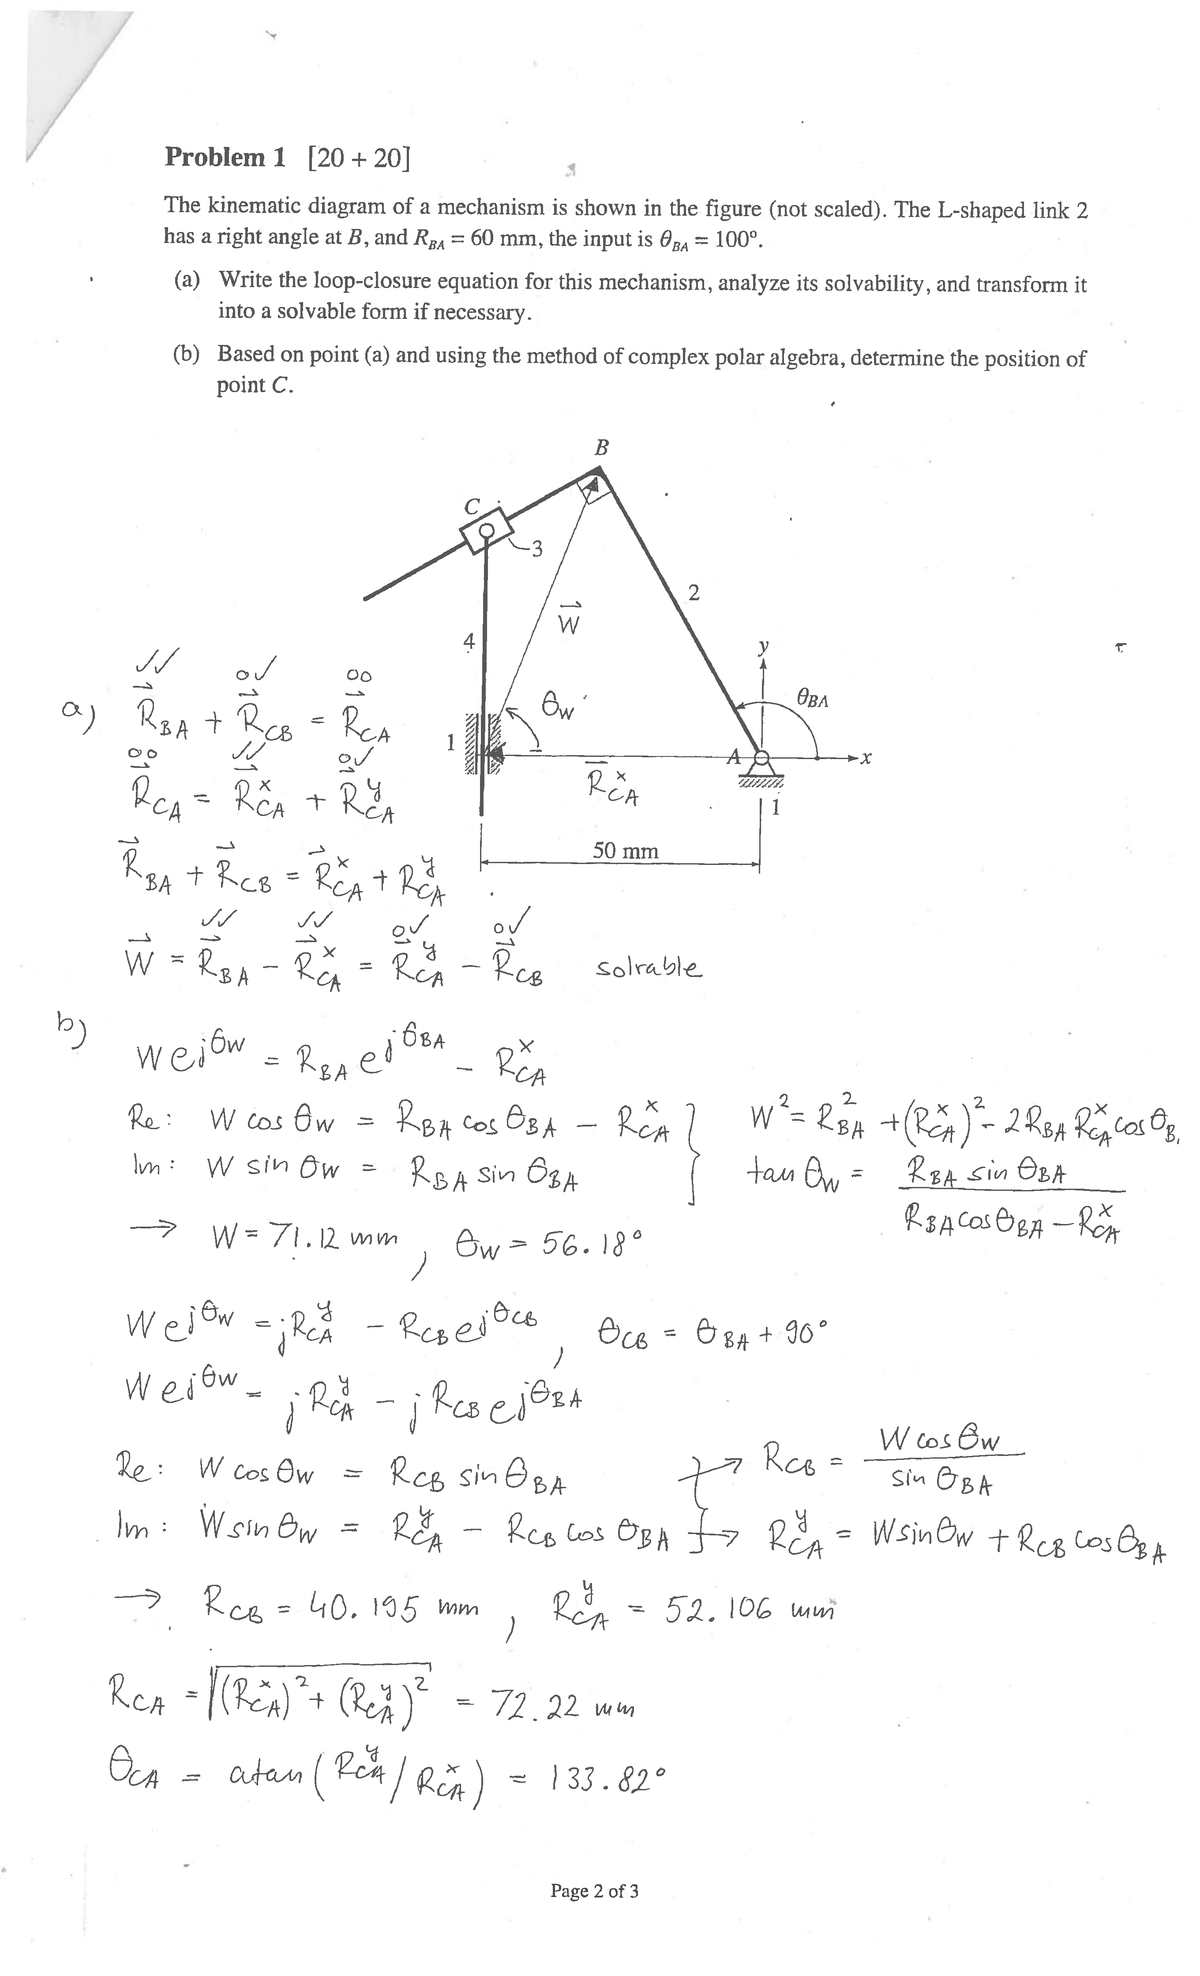 Problem 1 [20 + 20]
The kinematic diagram of a mechanism is shown in the figure (not scaled). The L-shaped link 2
has a right angle at B, and R_BA = 60 mm, the input is θ_BA = 100°.
(a) Write the loop-closure equation for this mechanism, analyze its solvability, and transform it
into a solvable form if necessary.
(b) Based on point (a) and using the method of complex polar algebra, determine the position of
point C.
B
C
3
2
W⃗
4
y
θ_BA
θ_W
1
A
x
R⃗_CA^x
1
50 mm
✓✓ o✓ oo
a) R⃗_BA + R⃗_CB = R⃗_CA
oo ✓✓ o✓
R⃗_CA = R⃗_CA^x + R⃗_CA^y
R⃗_BA + R⃗_CB = R⃗_CA^x + R_CA^y
✓✓ ✓✓ o✓ o✓
W⃗ = R⃗_BA − R⃗_CA^x = R⃗_CA^y − R⃗_CB solvable
b) W e^jθ_W = R_BA e^jθ_BA − R_CA^x
Re: W cos θ_W = R_BA cos θ_BA − R_CA^x } W² = R_BA² + (R_CA^x)² − 2 R_BA R_CA^x cos θ_B
Im: W sin θ_W = R_BA sin θ_BA tan θ_W = R_BA sin θ_BA
R_BA cos θ_BA − R_CA^x
→ W = 71.12 mm, θ_W = 56.18°
W e^jθ_W = jR_CA^y − R_CB e^jθ_CB, θ_CB = θ_BA + 90°
W e^jθ_W = j R_CA^y − j R_CB e^jθ_BA
Re: W cos θ_W = R_CB sin θ_BA } → R_CB = W cos θ_W
sin θ_BA
Im: W sin θ_W = R_CA^y − R_CB cos θ_BA } → R_CA^y = W sin θ_W + R_CB cos θ_BA
→ R_CB = 40.195 mm, R_CA^y = 52.106 mm
R_CA = √(R_CA^x)² + (R_CA^y)² = 72.22 mm
θ_CA = atan (R_CA^y / R_CA^x) = 133.82°
Page 2 of 3